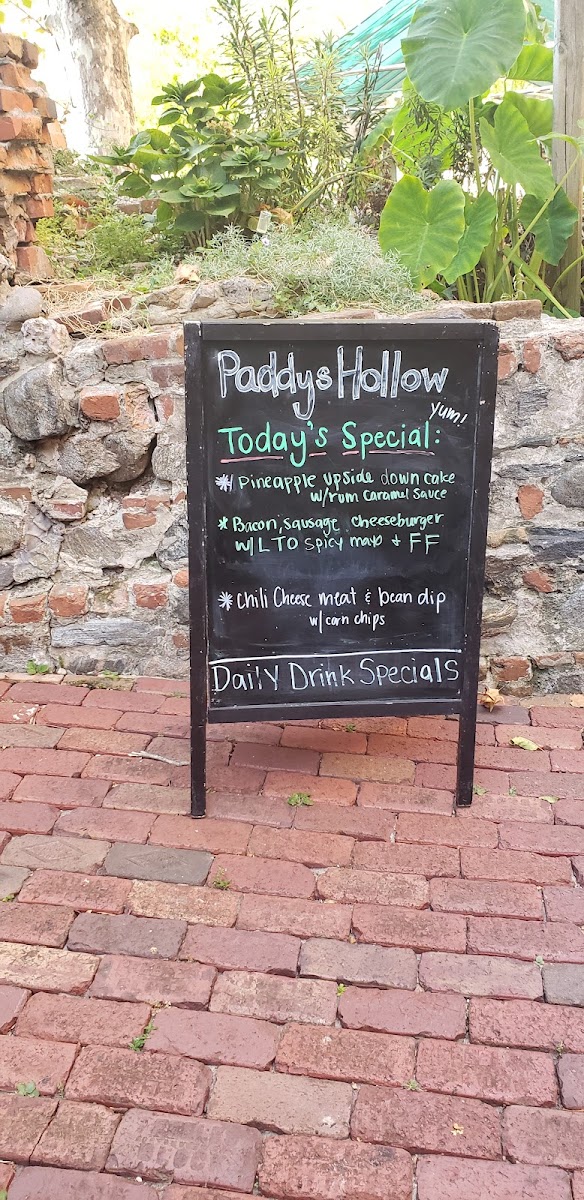 Paddys Hollow
yum!
Today's Special:
* Pineapple upside down cake
w/rum caramel sauce
* Bacon, sausage, cheeseburger
w/ LTO spicy mayo + FF
* Chili Cheese meat & bean dip
w/corn chips
Daily Drink Specials